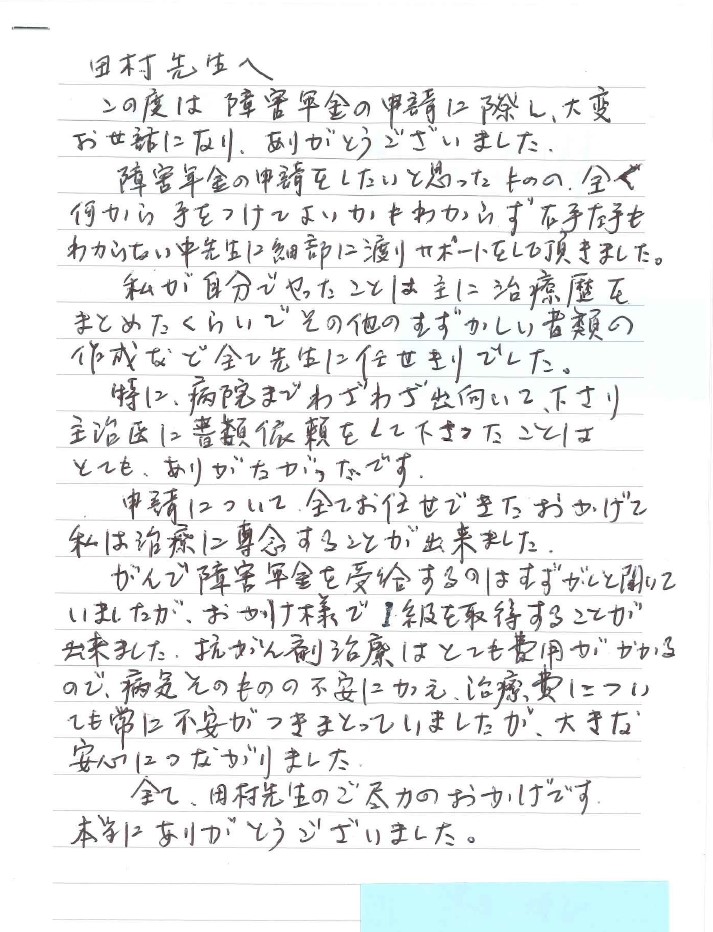 田村先生へ
この度は障害年金の申請に際し、大変
お世話になり、ありがとうございました.
障害年金の申請をしたいと思ったものの、全く
何から手をつけてよいかもわからず右手左手も
わからない中先生に細部に渡りサポートをして頂きました。
私が自分でやったことは主に治療歴を
まとめたくらいでその他のむずかしい書類の
作成など全て先生に任せきりでした。
特に、病院までわざわざ出向いて、下さり
主治医に書類依頼をして下さったことは
とても、ありがたかったです.
申請について、全てお任せできたおかげで
私は治療に専念することが出来ました.
がんで障害年金を受給するのはむずかしいと聞いて
いましたが、おかげ様で1級を取得することが
出来ました.抗がん剤治療はとても費用がかかる
ので、病気そのものの不安にかえ、治療費につい
ても常に不安がつきまとっていましたが、大きな
安心につながりました.
全て、田村先生のご尽力のおかげです.
本当にありがとうございました。